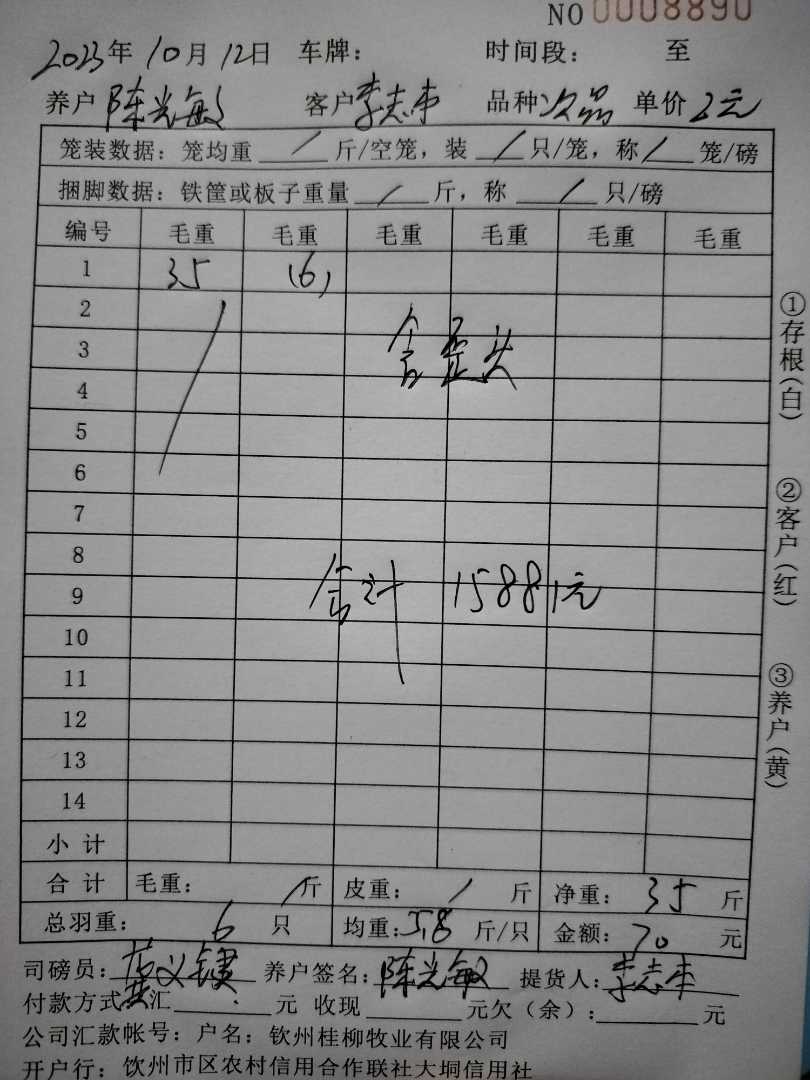 NO 0008890
2023年 10月 12日 车牌： 时间段： 至
养户 陈光敏 客户 李志本 品种 次品 单价 2元
笼装数据：笼均重 / 斤/空笼，装 / 只/笼，称 / 笼/磅
捆脚数据：铁筐或板子重量 / 斤，称 / 只/磅
编号 毛重 毛重 毛重 毛重 毛重 毛重
1 35 (6)
2
3 含歪头
4
5
6
7
8
9 合计 15881元
10
11
12
13
14
小计
合计 毛重： / 斤 皮重： / 斤 净重： 35 斤
总羽重： 6 只 均重：5.8 斤/只 金额： 70 元
司磅员： 养户签名：陈光敏 提货人：李志本
付款方式 汇 元 收现 元欠（余）： 元
公司汇款帐号：户名：钦州桂柳牧业有限公司
开户行：钦州市区农村信用合作联社大垌信用社
①存根(白)
②客户(红)
③养户(黄)